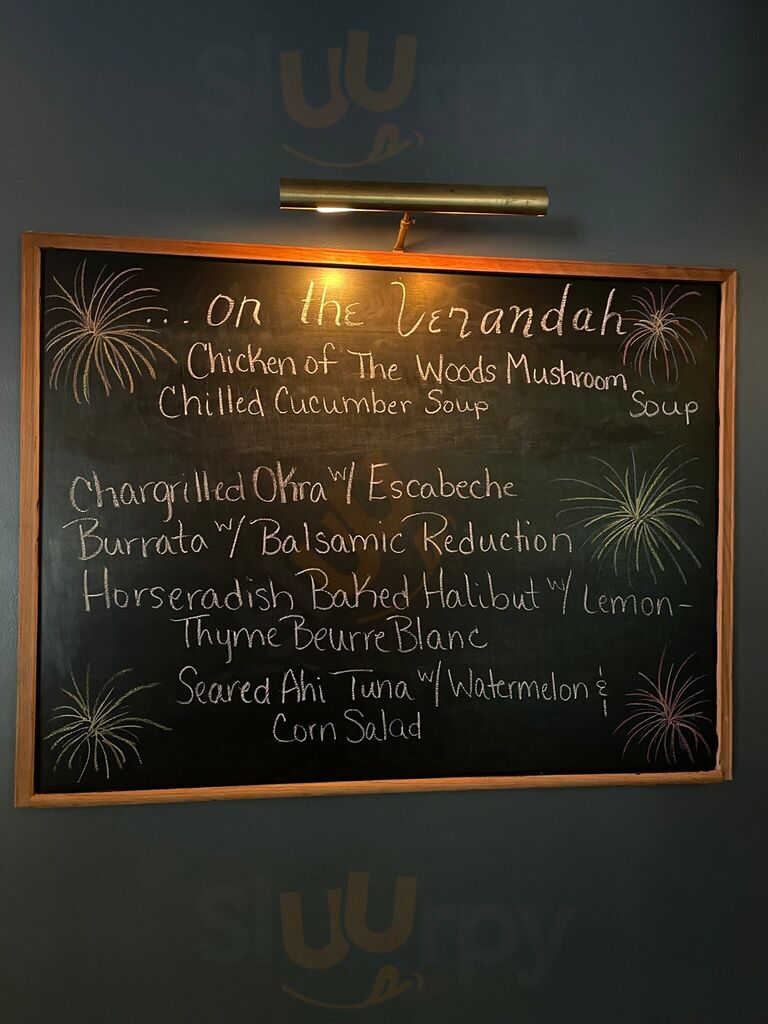 Sluurpy
...on the Verandah
Chicken of The Woods Mushroom
Chilled Cucumber Soup Soup
Chargrilled Okra w/ Escabeche
Burrata w/ Balsamic Reduction
Horseradish Baked Halibut w/ Lemon-
Thyme Beurre Blanc
Seared Ahi Tuna w/ Watermelon &
Corn Salad
Sluurpy